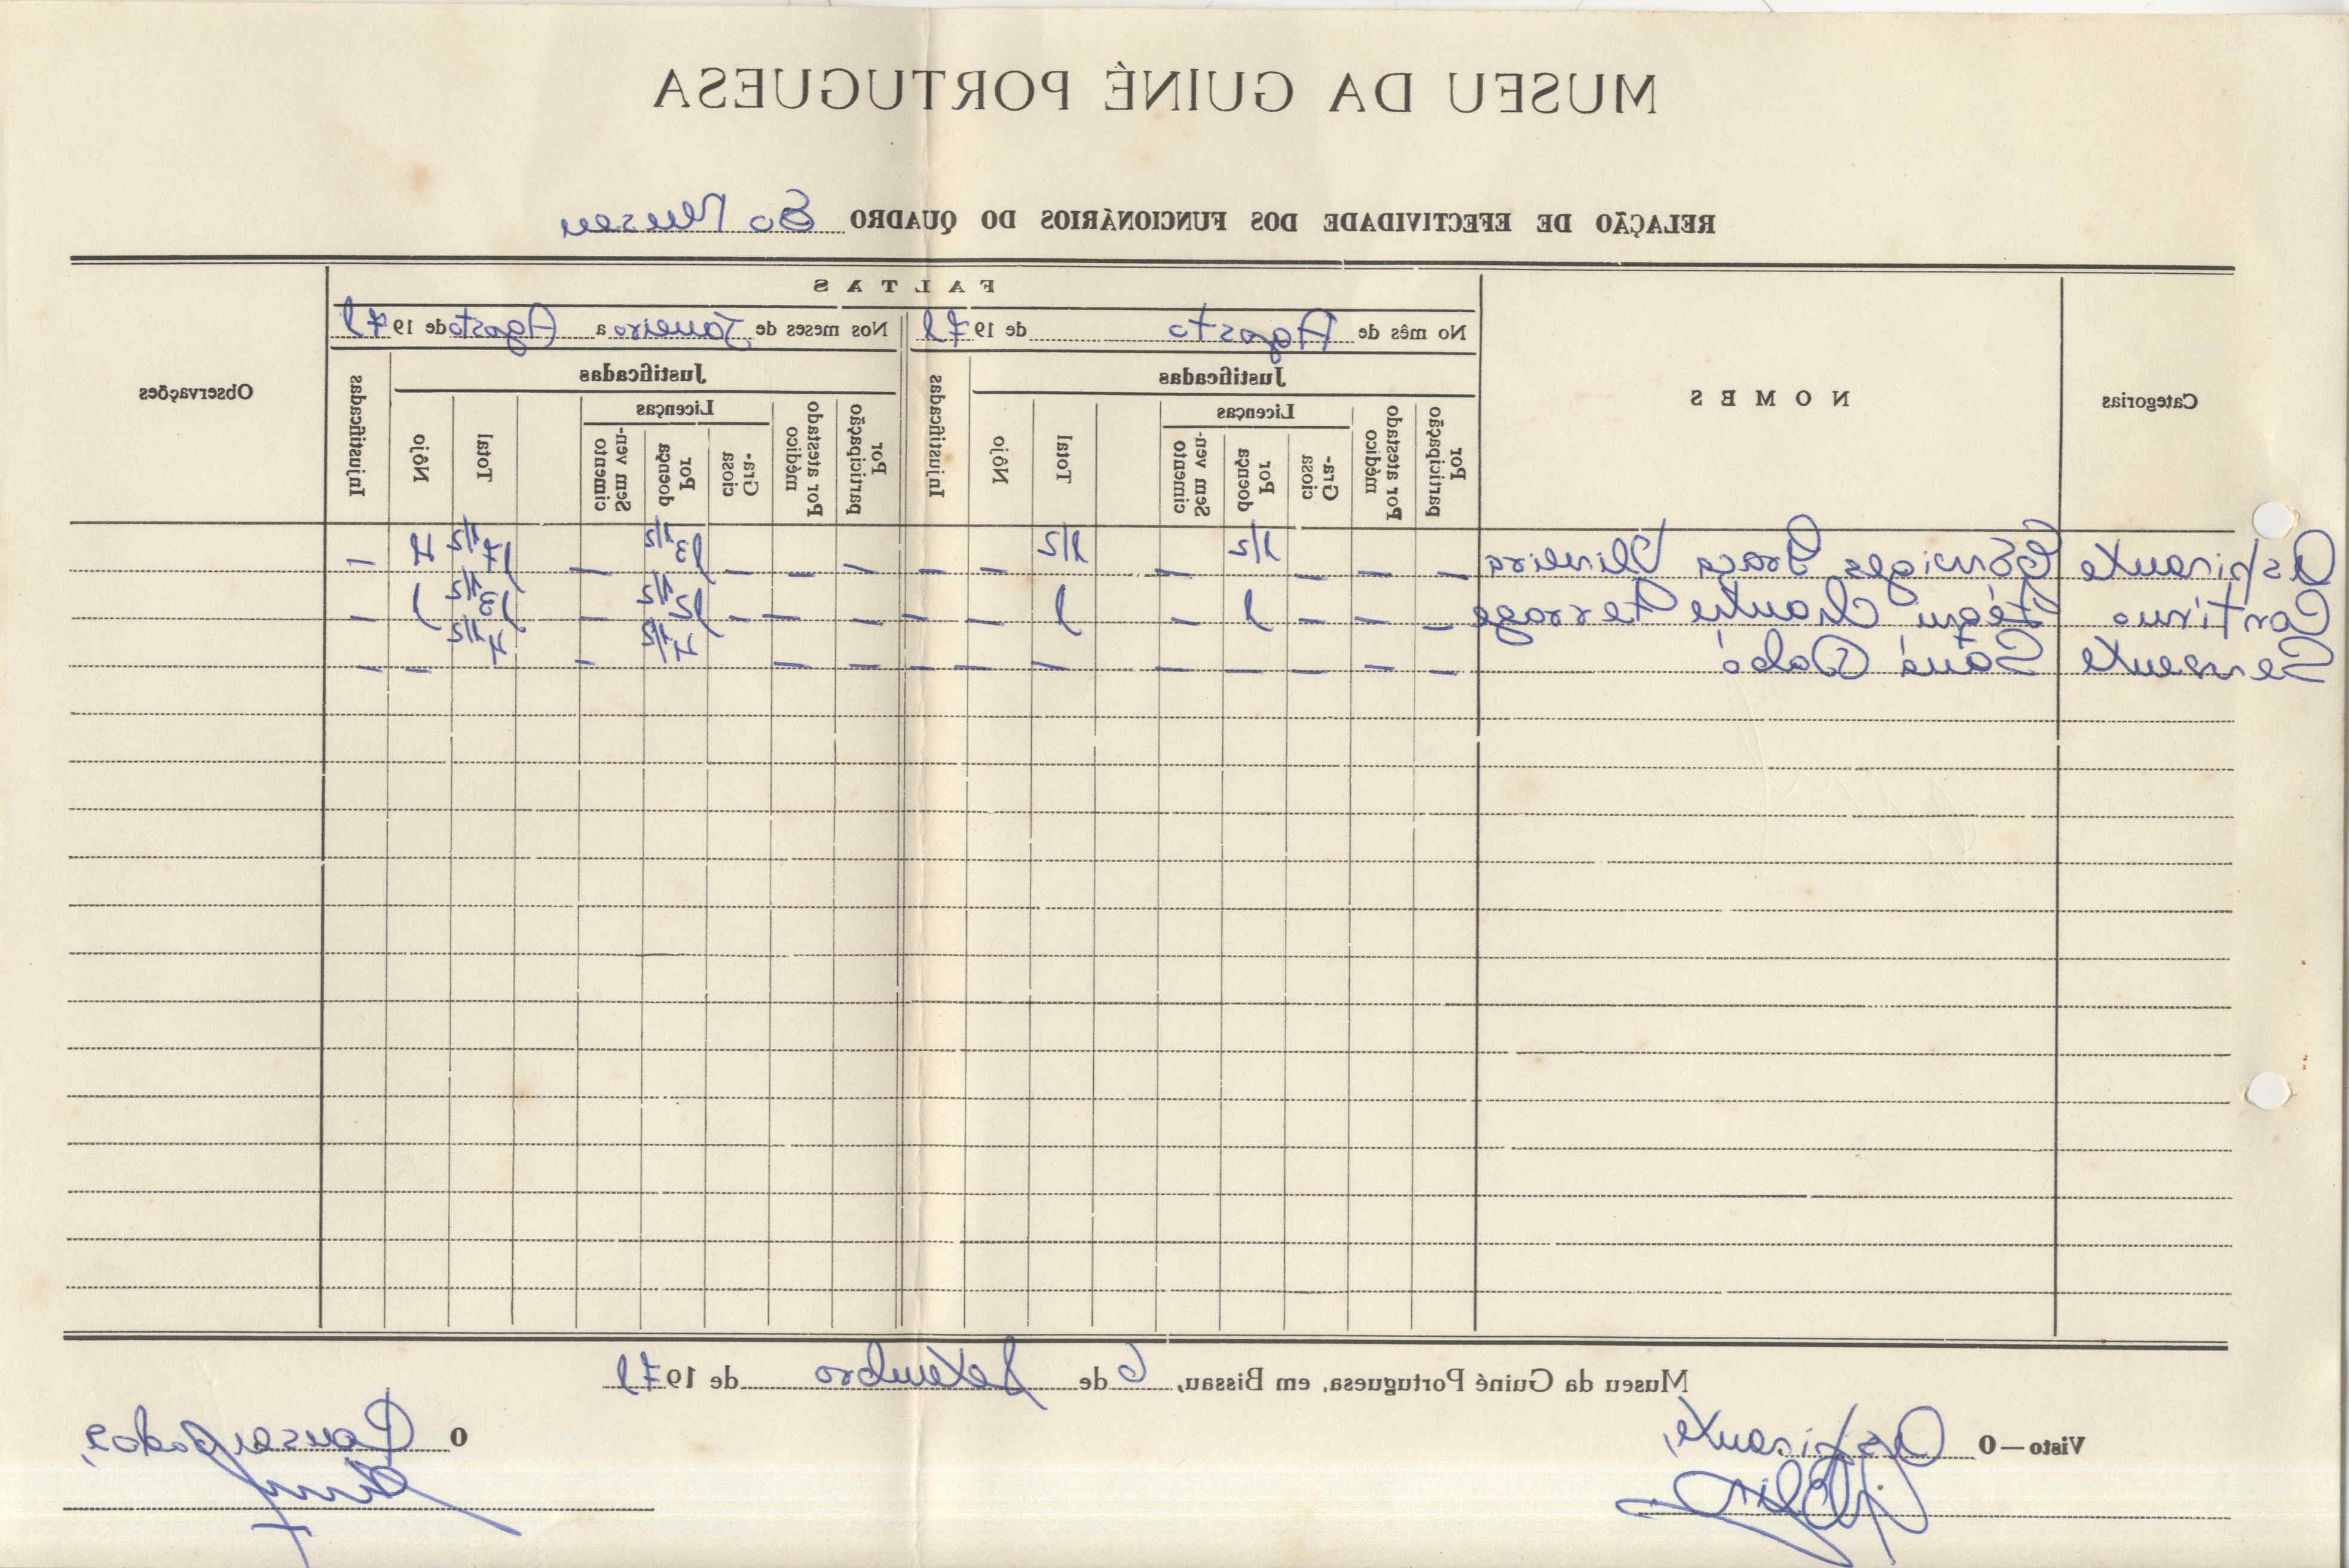 MUSEU DA GUINÉ PORTUGUESA
RELAÇÃO DE EFECTIVIDADE DOS FUNCIONÁRIOS DO QUADRO do Museu
Categorias
NOMES
FALTAS
No mês de Agosto de 1971
Nos meses de Janeiro a Agosto de 1971
Observações
Justificadas
Injustificadas
Justificadas
Injustificadas
Por participação
Por atestado médico
Licenças
Graciosa
Por doença
Sem vencimento
Total
Nôjo
Por participação
Por atestado médico
Licenças
Graciosa
Por doença
Sem vencimento
Total
Nôjo
Aspirante Edwiges Graça Vieira – – – 1/2 – 1/2 – – – – – 13 1/2 – 17 1/2 4 –
Contínuo – – – 1 – 1 – – – – – 12 1/2 – 13 1/2 1 –
Servente Saná Dabó – – – – – – – – – – 4 1/2 – 4 1/2 – –
Museu da Guiné Portuguesa, em Bissau, 6 de Setembro de 1971
Visto — O Aspirante,
O Conservador,